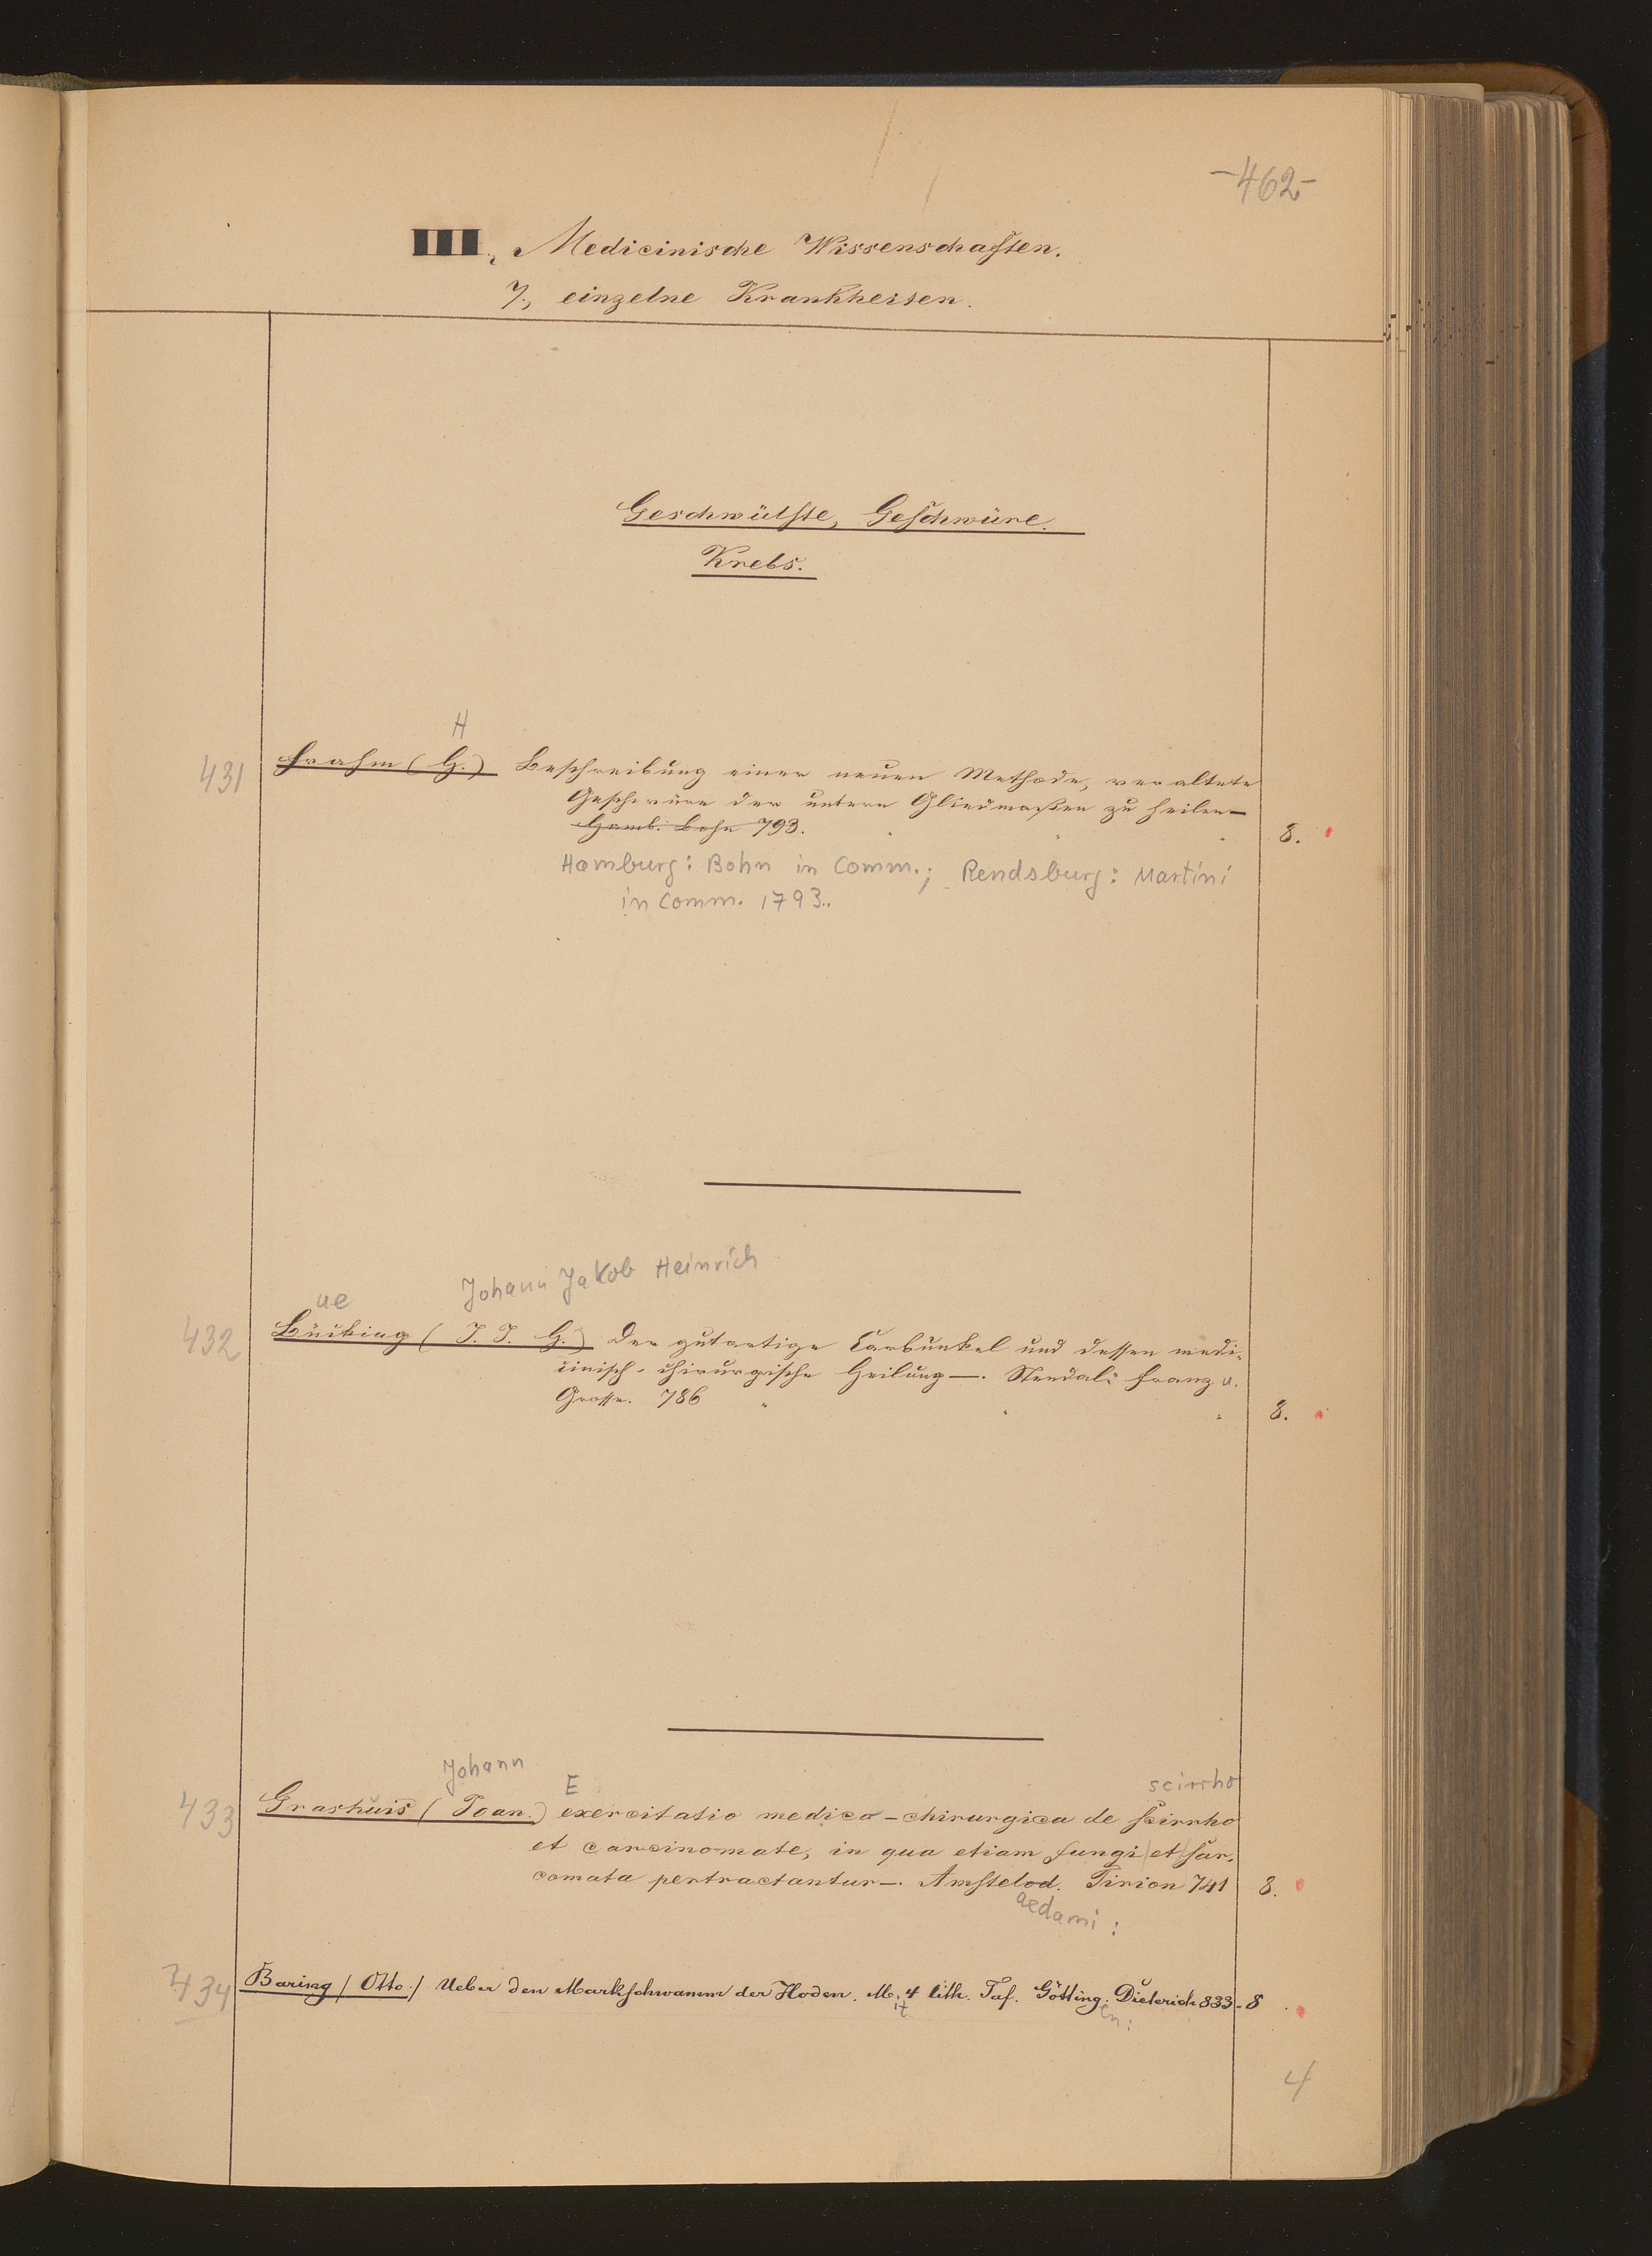 -462-
III., Medicinische Wissenschaften.
7., einzelne Krankheiten.
Geschwülste, Geschwüre.
Krebs.
H
431 Frahm (H.) Beschreibung einer neuen Methode, veraltete
Geschwüre der untern Gliedmaßen zu heilen—
Hamb. Bohn 793. 8.
Hamburg: Bohn in Comm.; Rendsburg: Martini
in Comm. 1793..
Johann Jakob Heinrich
ue
432 Bücking (J. J. H.) Der gutartige Carbunkel und dessen medi-
cinisch-chirurgische Heilung—. Stendal: Franz u.
Grosse. 786 8.
Johann E scirrho
433 Grashuis (Joan.) exercitatio medico-chirurgica de scirrho
et carcinomate, in qua etiam fungi et sar-
comata pertractantur—. Amstelod. Tirion 741 8.
aedami:
434 Baring (Otto.) Ueber den Markschwamm der Hoden. M. 4 lith. Taf. Götting. Dieterich 833 - 8
it en:
4